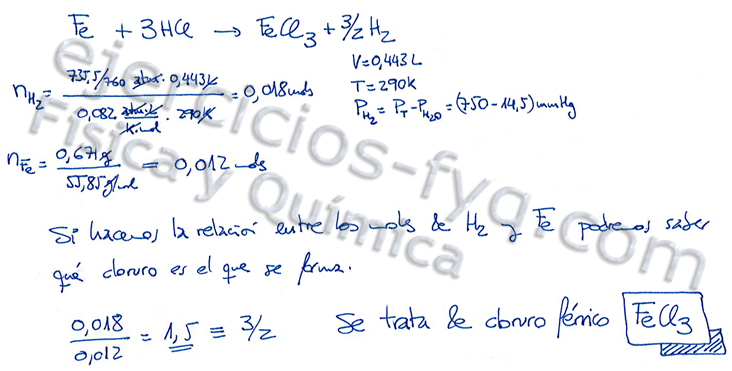 Fe + 3HCl → FeCl₃ + 3/2 H₂
V = 0,443 L
T = 290K
P_H₂ = P_T - P_H₂O = (750 - 14,5) mmHg
n_H₂ = (735,5/760 atm · 0,443 L) / (0,082 atm·L/K·mol · 290K) = 0,018 mols
n_Fe = 0,671 g / 55,85 g/mol = 0,012 mols
Si hacemos la relación entre los mols de H₂ y Fe podremos saber
qué cloruro es el que se forma.
0,018/0,012 = 1,5 ≡ 3/2
Se trata de cloruro férrico FeCl₃
ejercicios-fyq.com
Física y Química